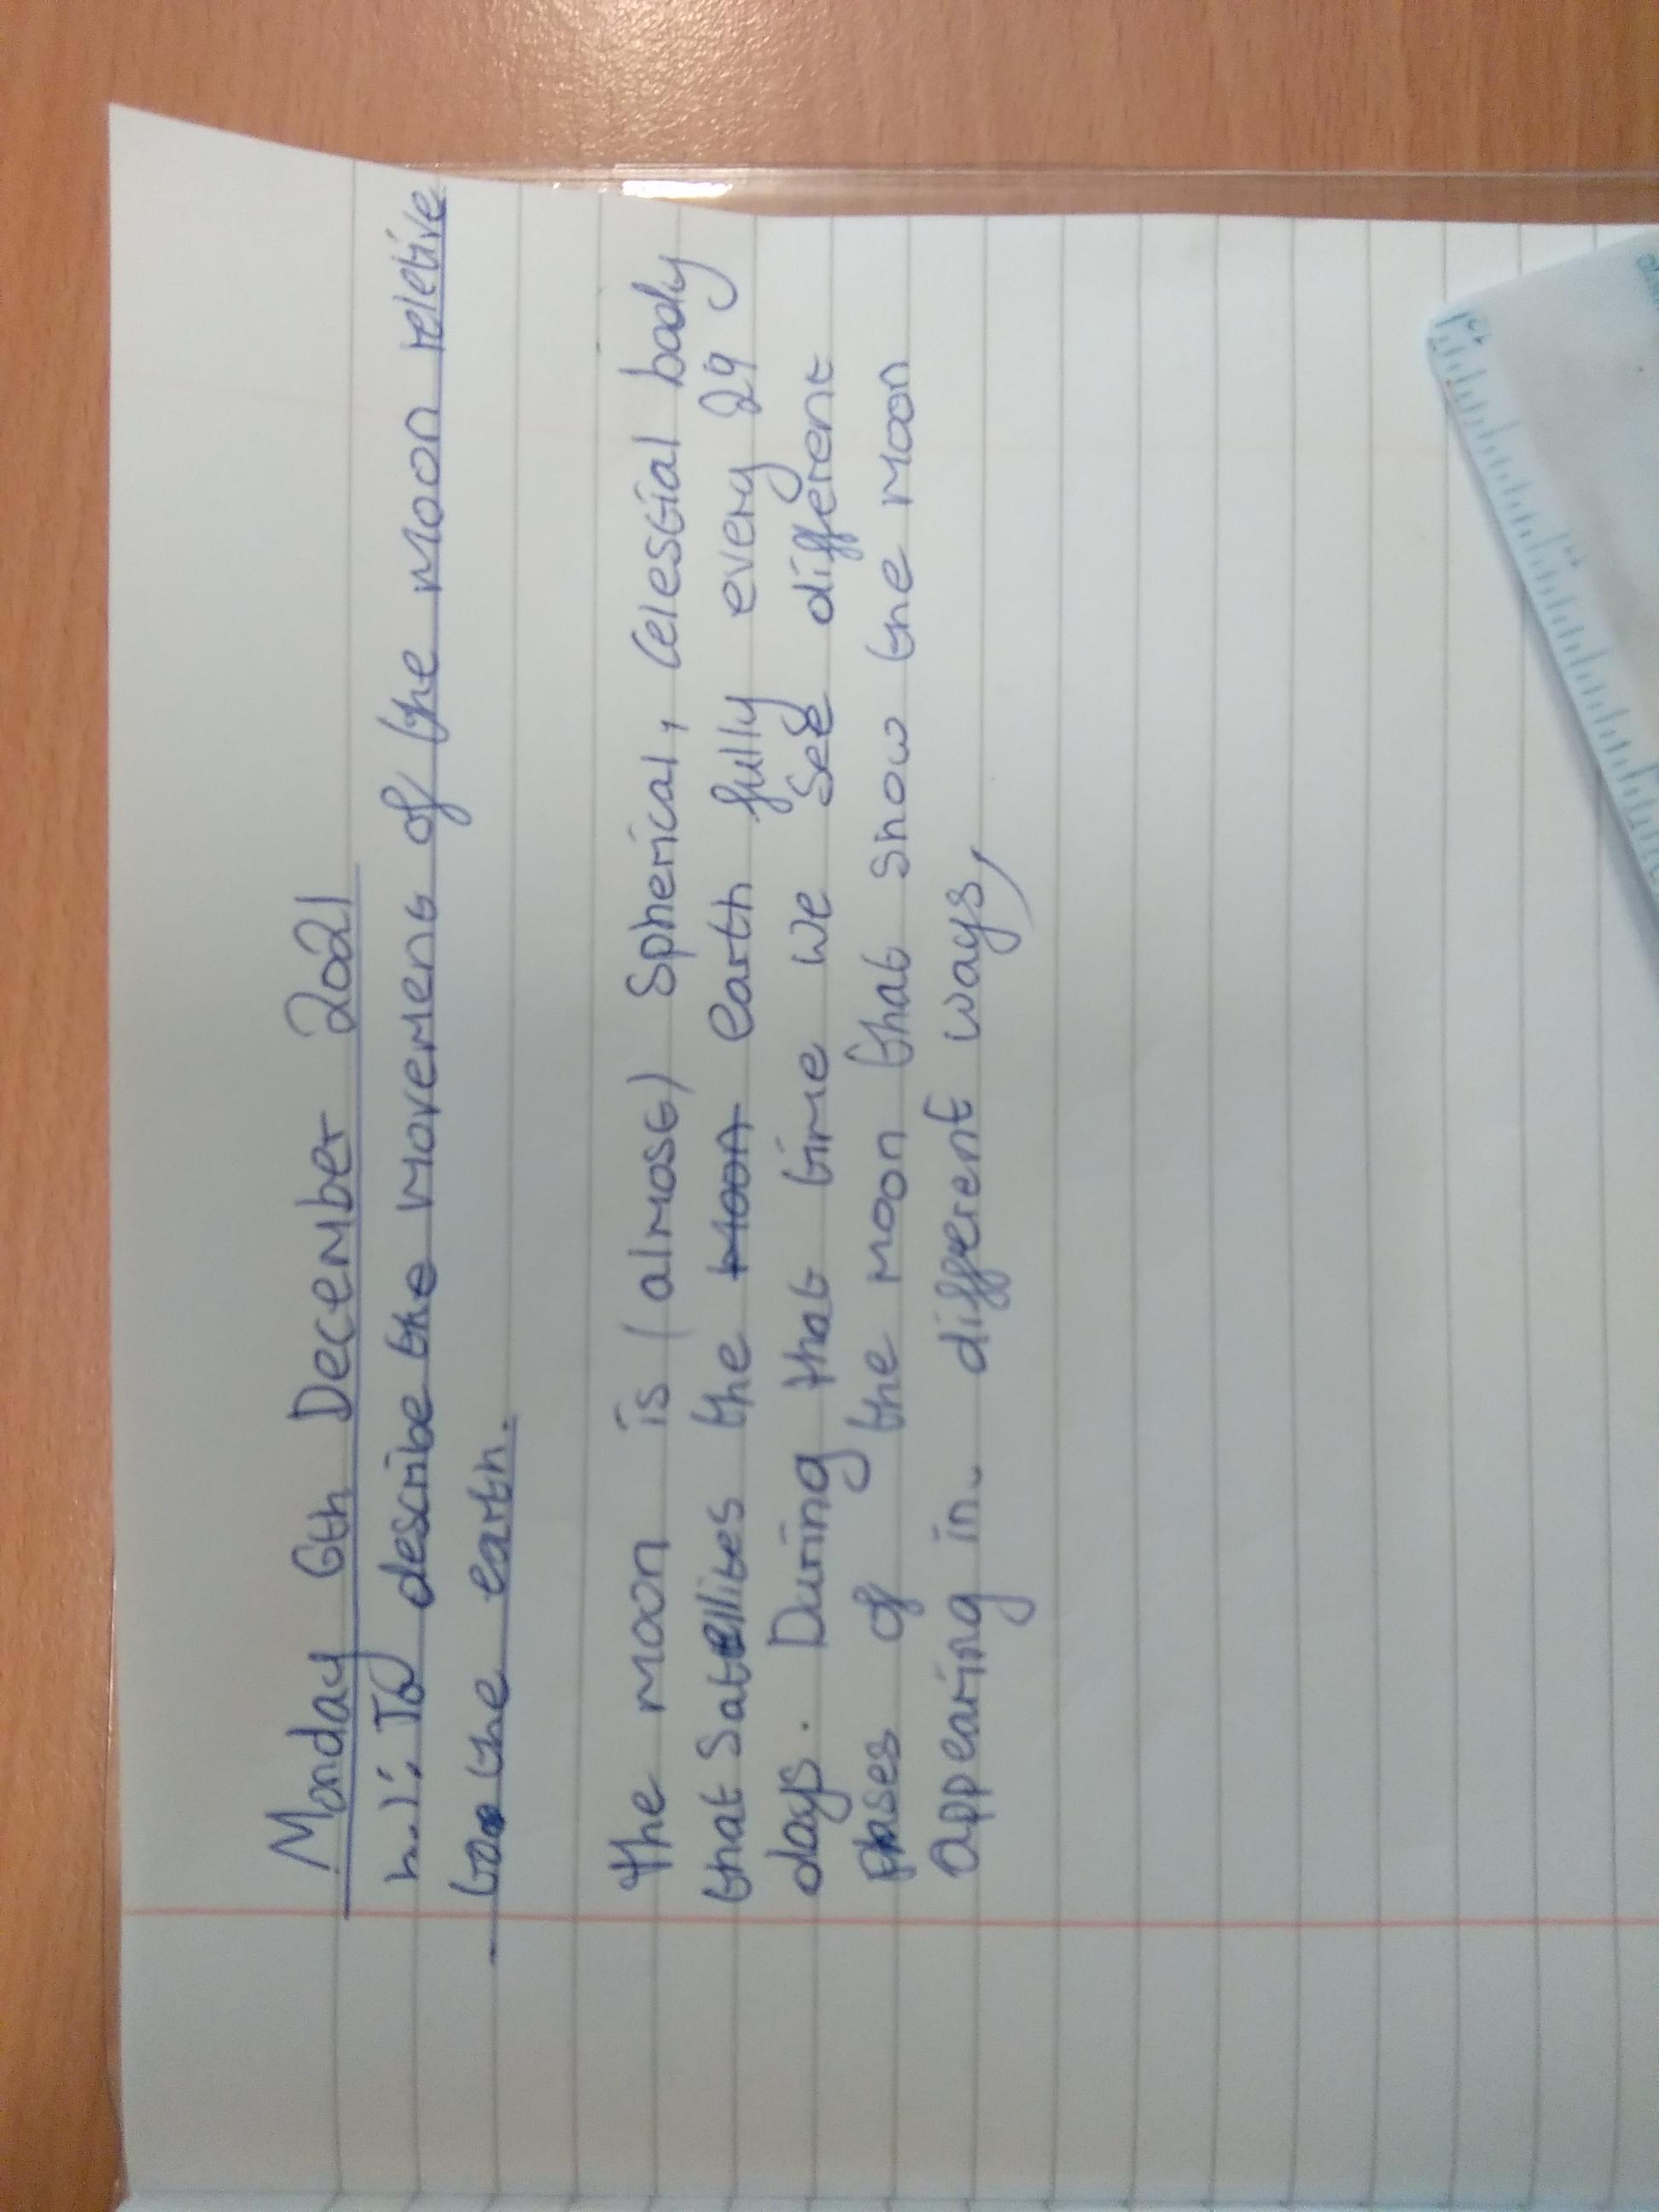 Monday 6th December 2021
h.l: To describe the movement of the moon reletive
to the earth.
the moon is (almost) spherical, celestial body
that satellites the moon earth fully every 29
days. During that time we see different
phases of the moon that show the moon
appearing in different ways,